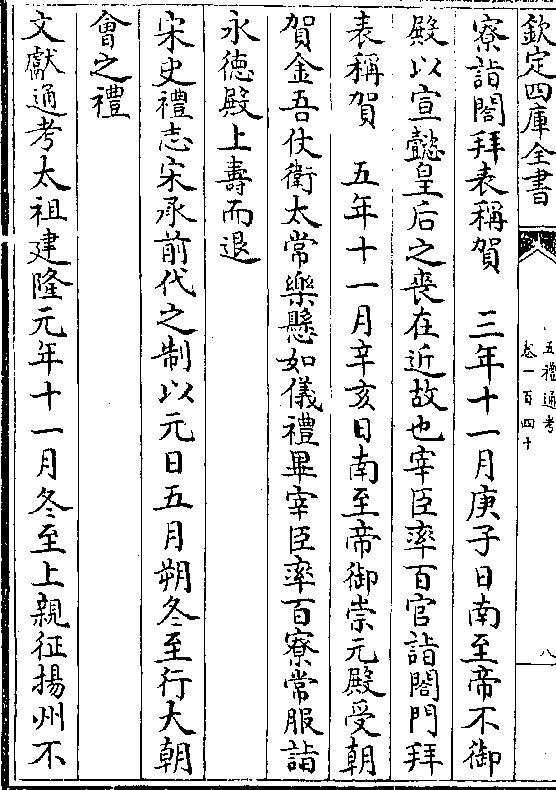 欽定四庫全書
五禮通考
卷一百四十
八
寮詣閤拜表稱賀　三年十一月庚子日南至帝不御
殿以宣懿皇后之喪在近故也宰臣率百官詣閤門拜
表稱賀　五年十一月辛亥日南至帝御崇元殿受朝
賀金吾仗衛太常樂懸如儀禮畢宰臣率百寮常服詣
永德殿上壽而退
宋史禮志宋承前代之制以元日五月朔冬至行大朝
會之禮
文獻通考太祖建隆元年十一月冬至上親征揚州不